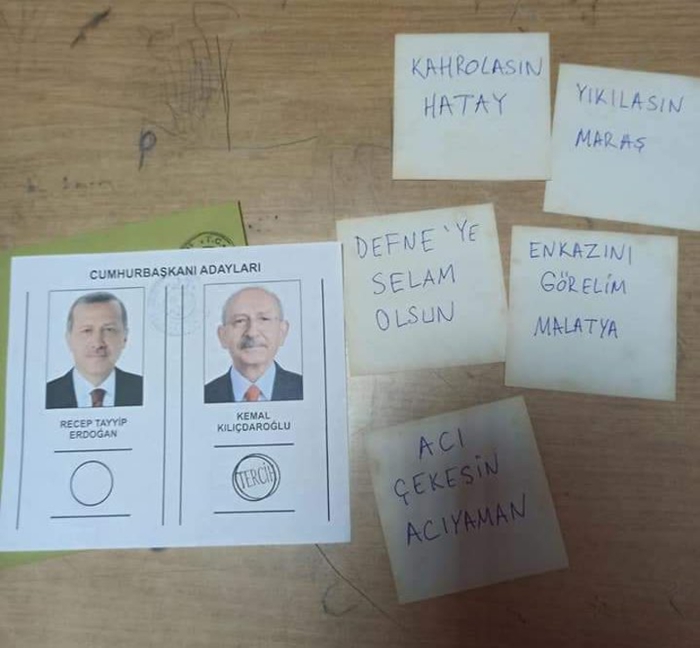 CUMHURBAŞKANI ADAYLARI
RECEP TAYYİP
ERDOĞAN
KEMAL
KILIÇDAROĞLU
TERCİH
KAHROLASIN
HATAY
YIKILASIN
MARAŞ
DEFNE'YE
SELAM
OLSUN
ENKAZINI
GÖRELİM
MALATYA
ACI
ÇEKESİN
ACIYAMAN